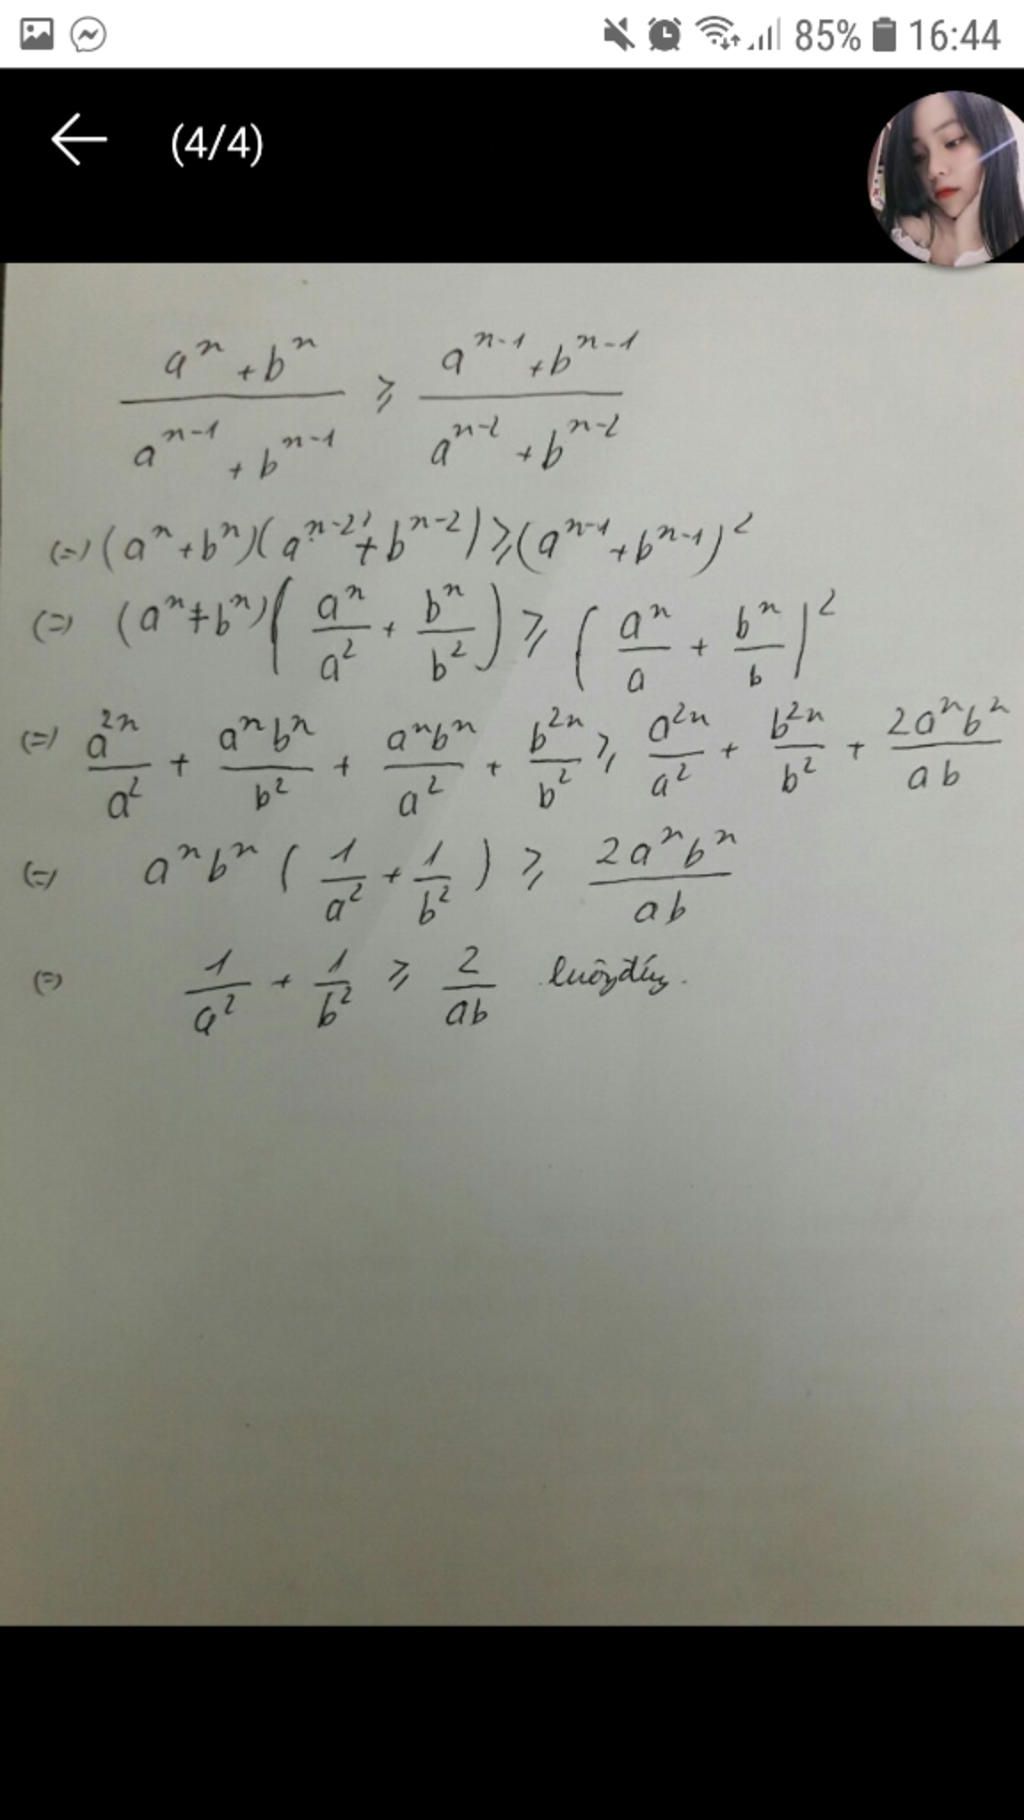 85% 16:44
(4/4)
aⁿ + bⁿ / aⁿ⁻¹ + bⁿ⁻¹ ⩾ aⁿ⁻¹ + bⁿ⁻¹ / aⁿ⁻² + bⁿ⁻²
(=) (aⁿ + bⁿ)(aⁿ⁻² + bⁿ⁻²) ⩾ (aⁿ⁻¹ + bⁿ⁻¹)²
(=) (aⁿ + bⁿ)(aⁿ/a² + bⁿ/b²) ⩾ (aⁿ/a + bⁿ/b)²
(=) a²ⁿ/a² + aⁿbⁿ/b² + aⁿbⁿ/a² + b²ⁿ/b² ⩾ a²ⁿ/a² + b²ⁿ/b² + 2aⁿbⁿ/ab
(=) aⁿbⁿ (1/a² + 1/b²) ⩾ 2aⁿbⁿ/ab
(=) 1/a² + 1/b² ⩾ 2/ab luôn đúng.